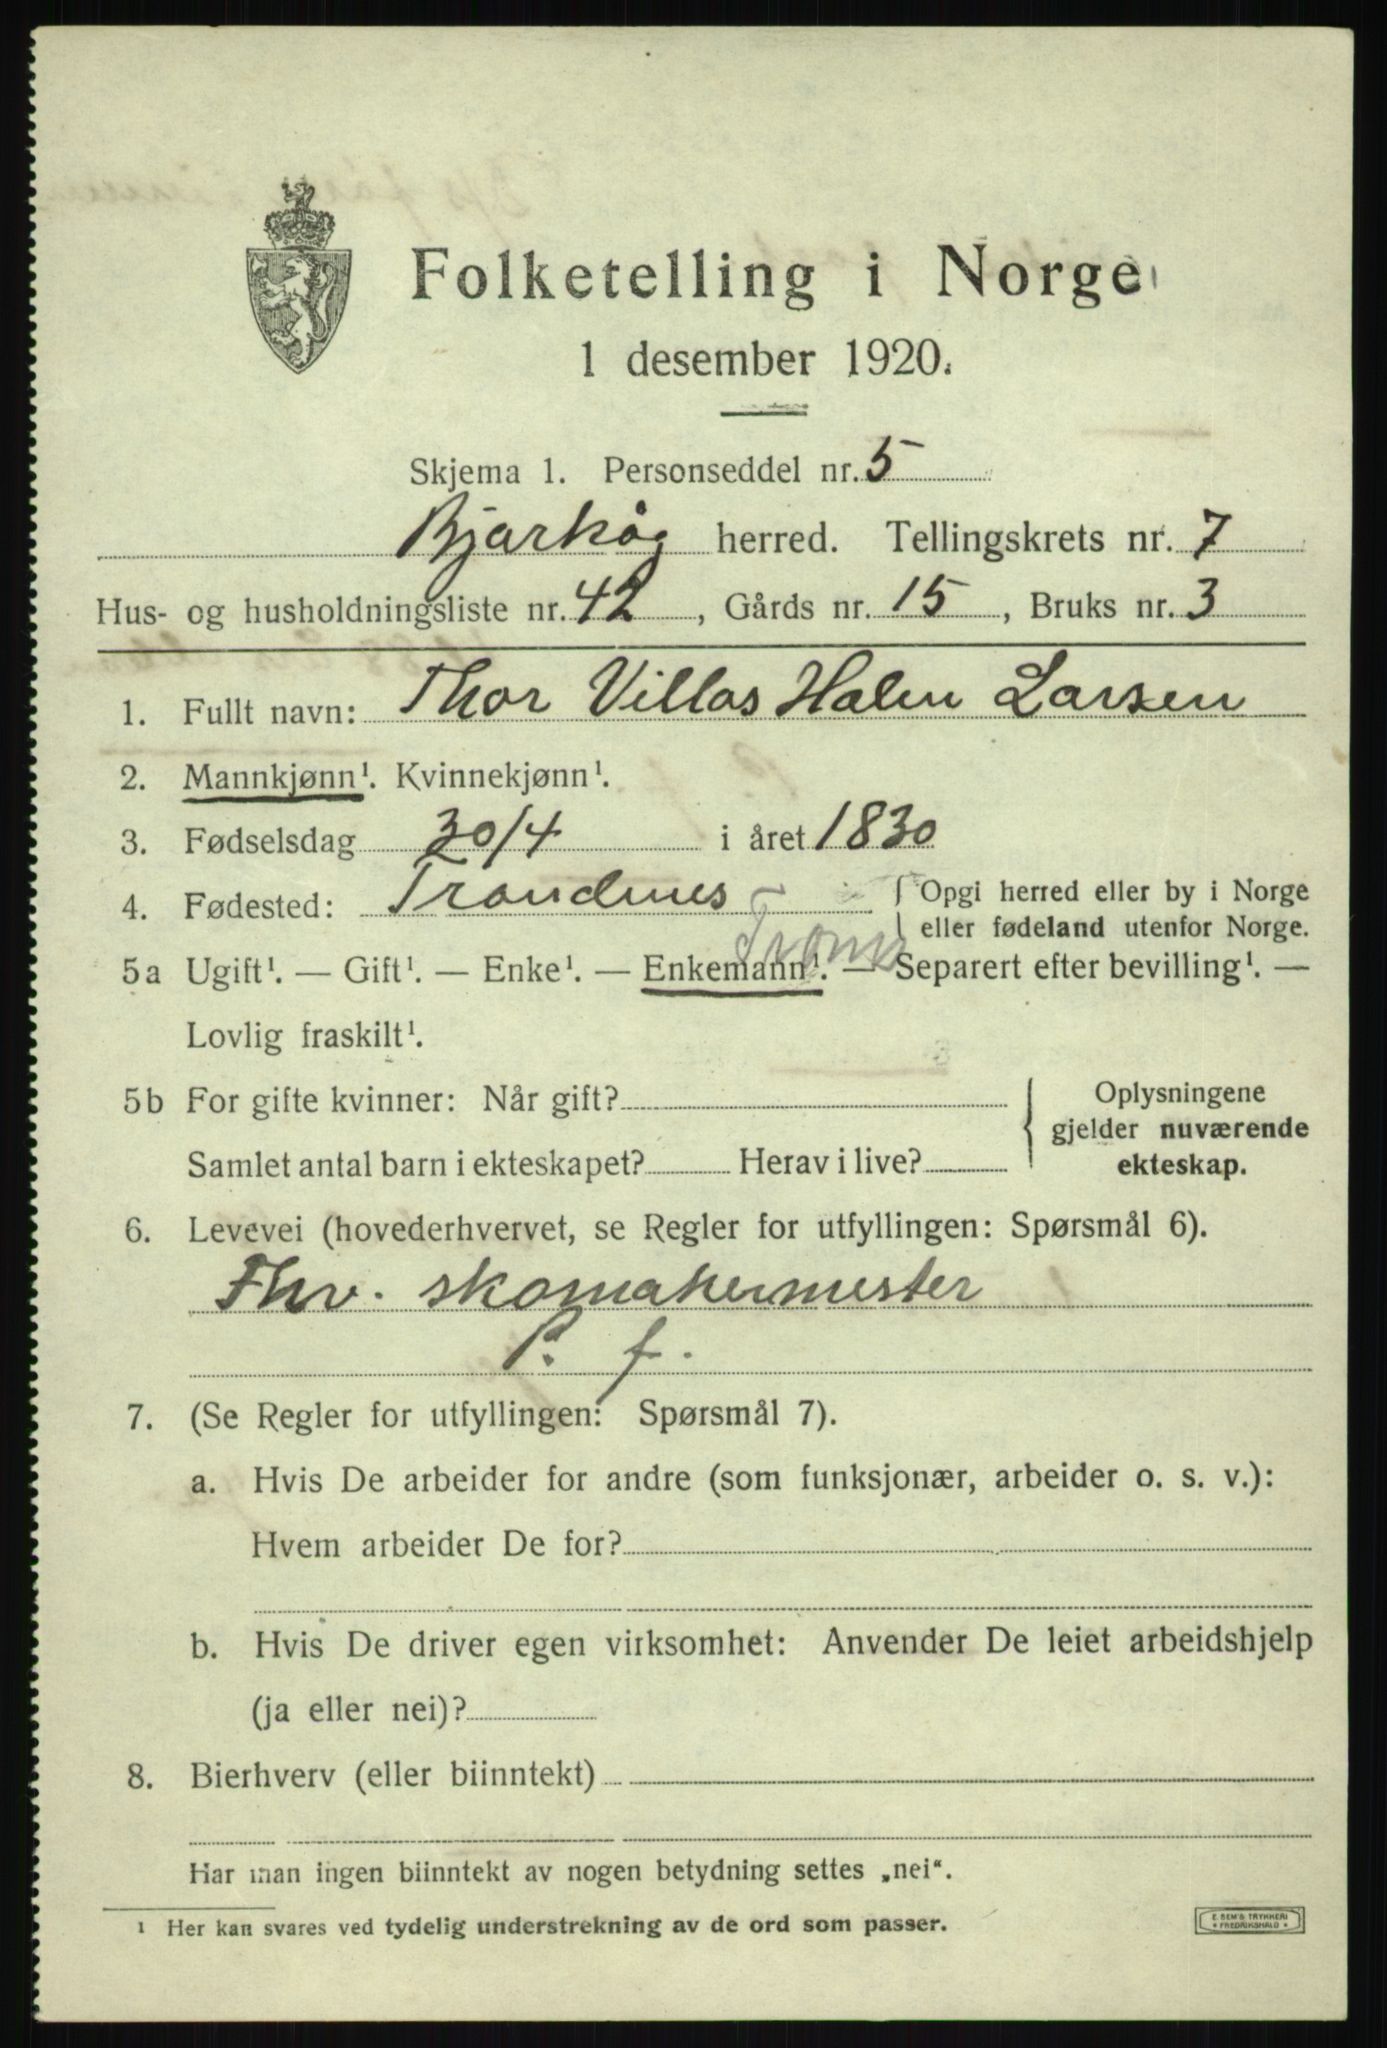 Folketelling i Norge
1 desember 1920.
Skjema 1. Personseddel nr. 5
Bjarkøy herred. Tellingskrets nr. 7
Hus- og husholdningsliste nr. 42, Gårds nr. 15, Bruks nr. 3
1. Fullt navn: Thor Villas Halm Larsen
2. Mannkjønn¹. Kvinnekjønn¹.
3. Fødselsdag 30/4 i året 1830
4. Fødested: Trondenes { Opgi herred eller by i Norge
eller fødeland utenfor Norge.
Troms
5a Ugift¹. — Gift¹. — Enke¹. — Enkemann¹. — Separert efter bevilling¹. —
Lovlig fraskilt¹.
5b For gifte kvinner: Når gift?
Samlet antal barn i ekteskapet? Herav i live?
Oplysningene
gjelder nuværende
ekteskap.
6. Levevei (hovederhvervet, se Regler for utfyllingen: Spørsmål 6).
Fhv. skomakermester
P. f.
7. (Se Regler for utfyllingen: Spørsmål 7).
a. Hvis De arbeider for andre (som funksjonær, arbeider o. s. v.):
Hvem arbeider De for?
b. Hvis De driver egen virksomhet: Anvender De leiet arbeidshjelp
(ja eller nei)?
8. Bierhverv (eller biinntekt)
Har man ingen biinntekt av nogen betydning settes „nei“.
¹ Her kan svares ved tydelig understrekning av de ord som passer.
E. SEM'S TRYKKERI
* FREDRIKSHALD *